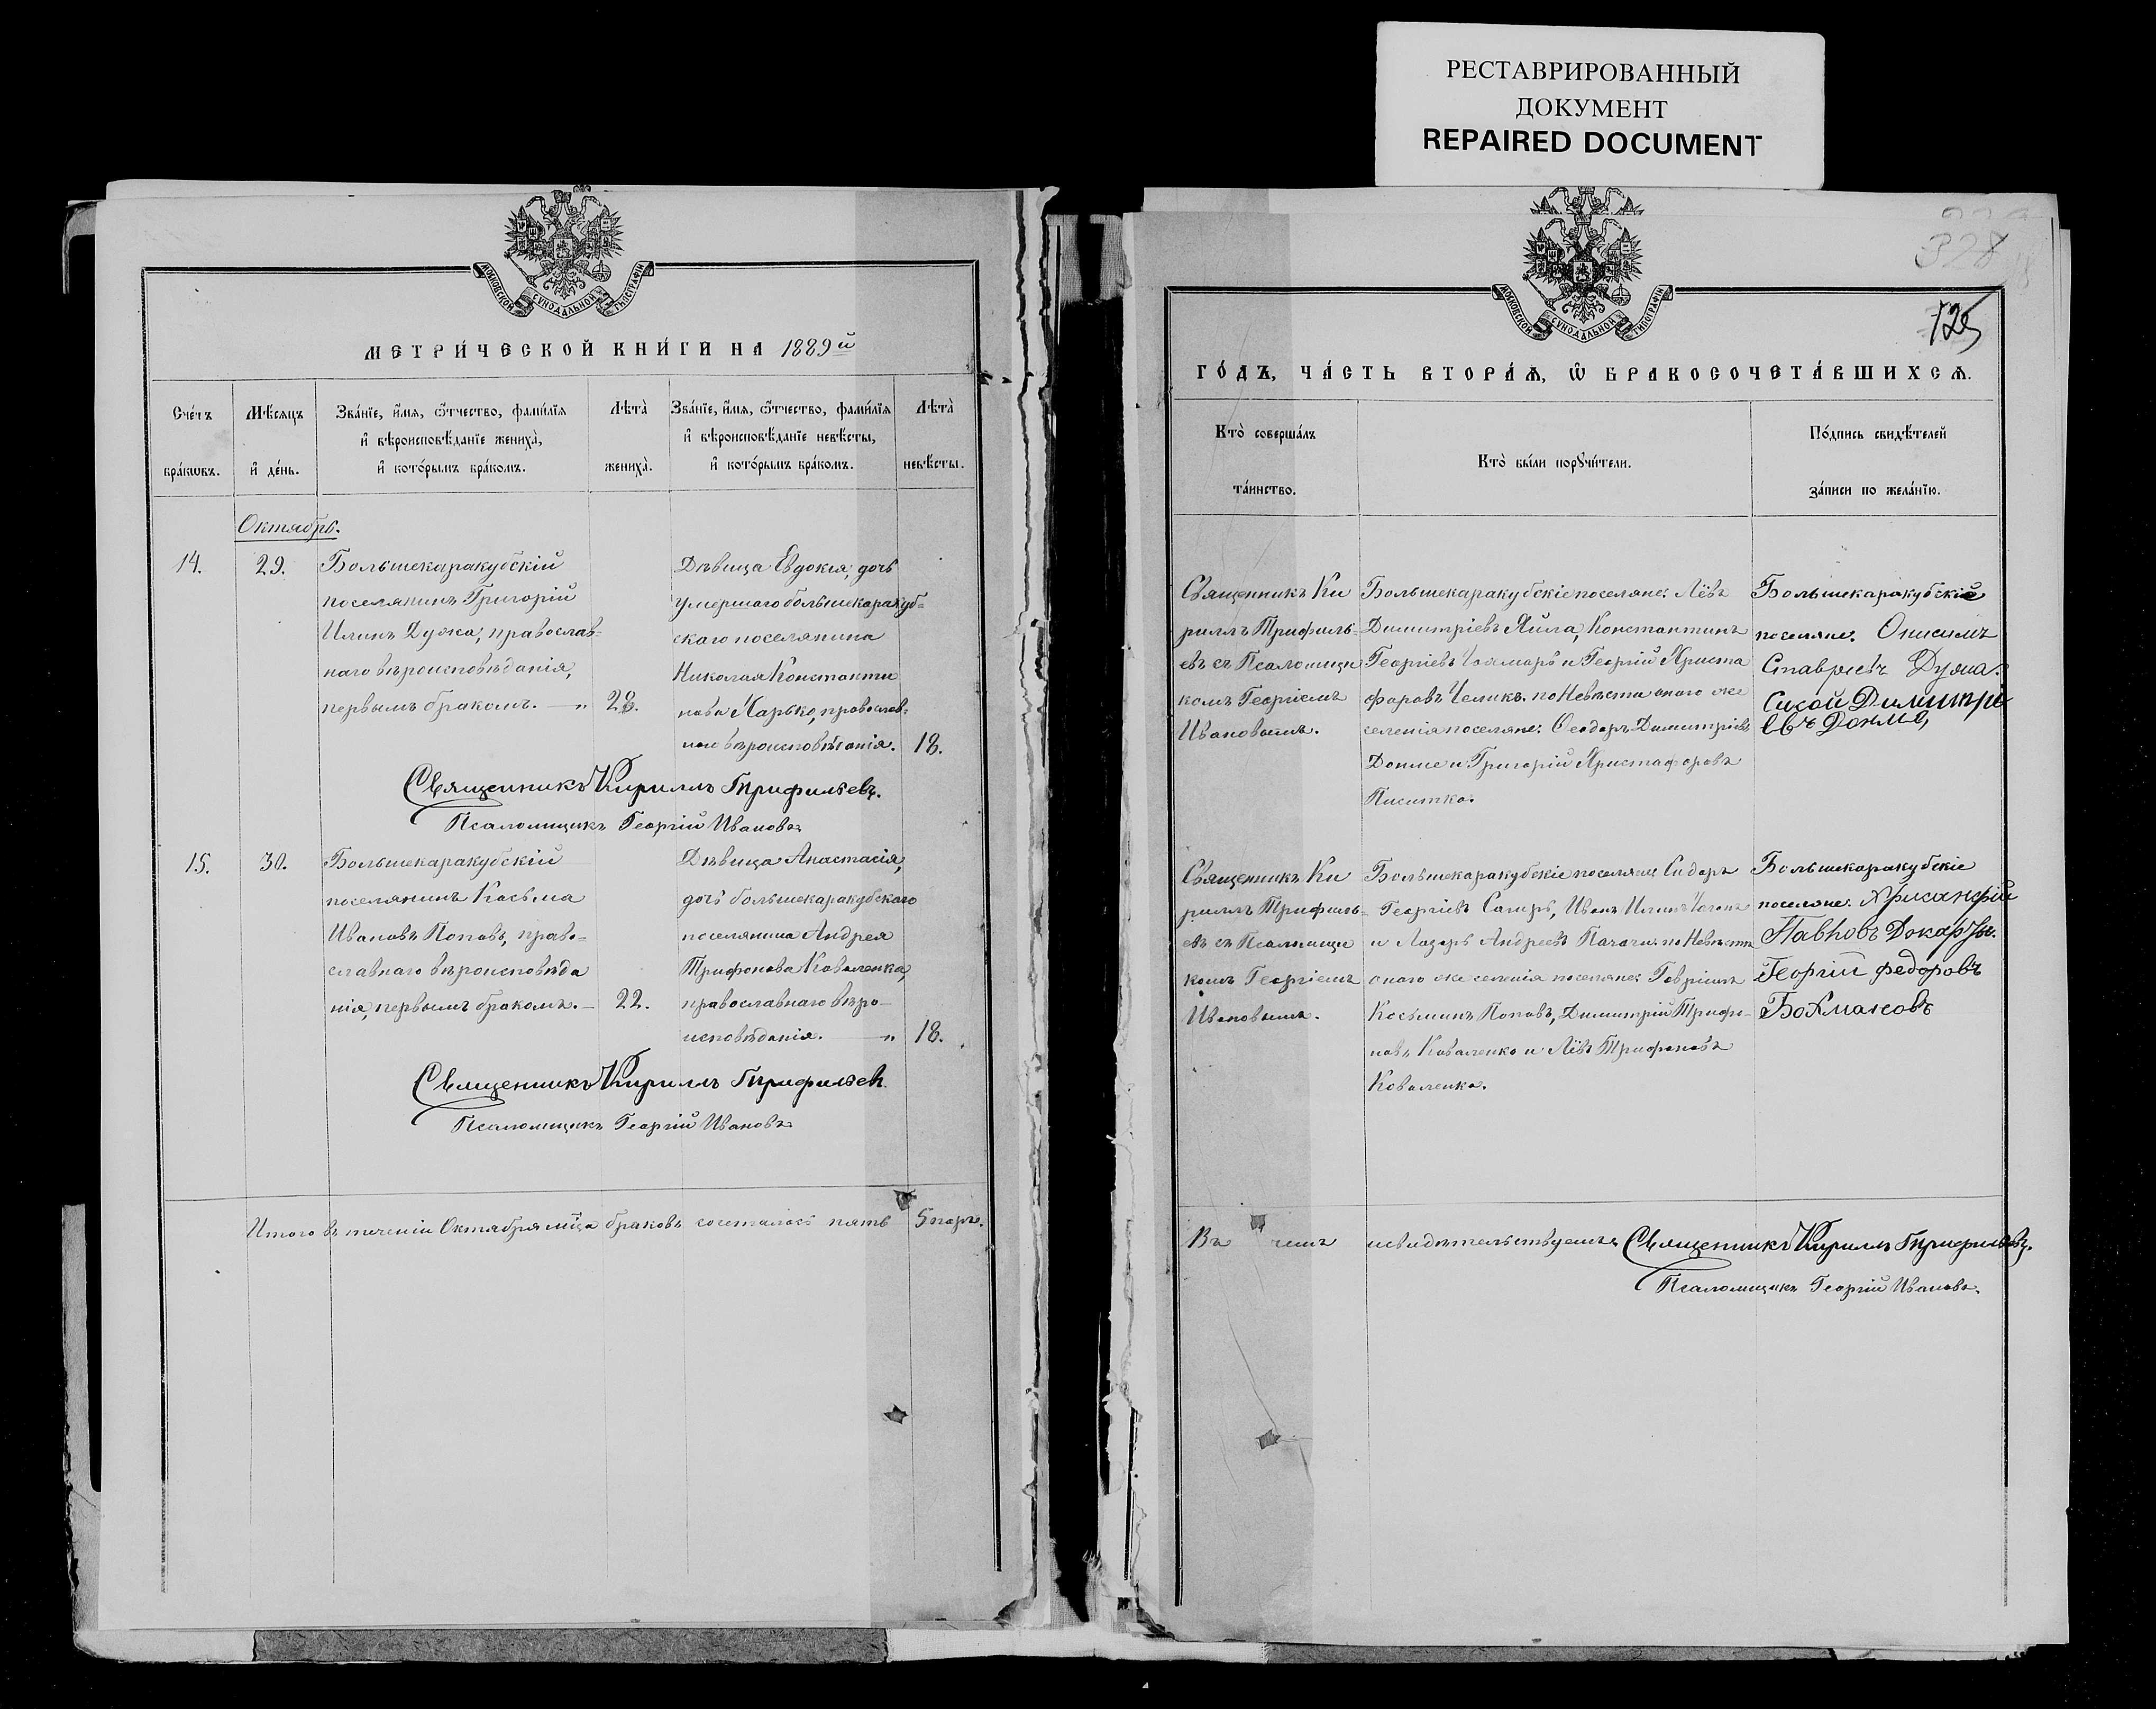 РЕСТАВРИРОВАННЫЙ
ДОКУМЕНТ
REPAIRED DOCUMENT
МОСКОВСКОЙ СУНОДАЛЬНОЙ ТИПОГРАФІИ
МЕТРИ́ЧЕСКОЙ КНИ́ГИ НА 1889й
Сче́тъ
бра́ковъ.
Мѣ́сяцъ
и҆ де́нь.
Зва́нїе, и҆́мя, ѻ҆́тчество, фами́лїя
и҆ вѣроисповѣ́данїе жениха̀,
и҆ кото́рымъ бра́комъ.
Лѣта̀
жениха̀.
Зва́нїе, и҆́мя, ѻ҆́тчество, фами́лїя
и҆ вѣроисповѣ́данїе невѣ́сты,
и҆ кото́рымъ бра́комъ.
Лѣта̀
невѣ́сты.
Октябрь.
14.
29.
Большекаракубскій
поселянинъ Григорій
Илинъ Дужа, православ-
наго вѣроисповѣданія,
первымъ бракомъ. — „
28.
Дѣвица Евдокія, дочь
умершаго большекаракуб=
скаго поселянина
Николая Константи
нова Харько, православ-
наго вѣроисповѣданія.
18.
Священникъ Кирилъ Трифильевъ.
Псаломщикъ Георгій Ивановъ
15.
30.
Большекаракубскій
поселянинъ Косьма
Ивановъ Поповъ, право-
славнаго вѣроисповѣда
нія, первымъ бракомъ. —
22.
Дѣвица Анастасія,
дочь большекаракубскаго
поселянина Андрея
Трифонова Коваленка,
православнаго вѣро-
исповѣданія. — „
18.
Священникъ Кирилъ Трифильевъ
Псаломщикъ Георгій Ивановъ
Итого въ теченіи Октября мѣца браковъ сочеталось пять
5 паръ.
328
125
МОСКОВСКОЙ СУНОДАЛЬНОЙ ТИПОГРАФІИ
ГО́ДЪ, ЧА́СТЬ ВТОРА́Я, Ѡ҆ БРАКОСОЧЕТА́ВШИХСЯ.
Кто̀ соверша́лъ
та́инство.
Кто̀ бы́ли порꙋчи́тели.
По́дпись свидѣ́телей
за́писи по жела́нїю.
Священникъ Ки
риллъ Трифиль-
евъ съ Псаломщи
комъ Георгіемъ
Ивановымъ.
Большекаракубскіе поселяне: Лёвъ
Димитріевъ Яйла, Константинъ
Георгіевъ и Георгій Христа
форовъ Челикъ. по Невѣстѣ оного же
селенія поселяне: Ѳеодоръ Димитріевъ
Донме и Григорій Христафоровъ
Писитка.
Большекаракубскіе
поселяне: Онисимъ
Ставріевъ
Сисой Димитрі
евъ Донме,
Священникъ Ки
риллъ Трифиль-
евъ съ Псаломщи
комъ Георгіемъ
Ивановымъ.
Большекаракубскіе поселяне Сидоръ
Георгіевъ Сагиръ, Иванъ Илинъ
и Лазарь Андреевъ по Невѣстѣ
оного же селенія поселяне: Гавріилъ
Косьминъ Поповъ, Димитрій Трифо-
новъ Коваленко и Лёвъ Трифоновъ
Коваленка.
Большекаракубскіе
поселяне: Хрисанфій
Павловъ
Георгій федоровъ
Бахмаховъ
Въ чемъ и свидѣтельствуемъ: Священникъ Кирилъ Трифильевъ.
Псаломщикъ Георгій Ивановъ.